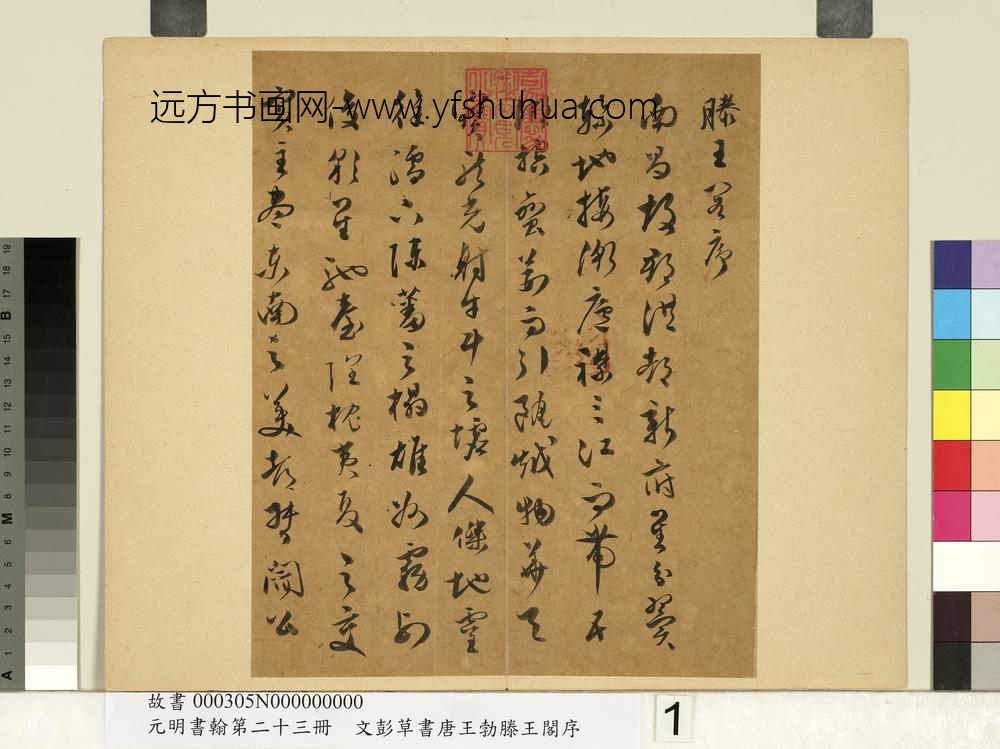 远方书画网-www.yfshuhua.com
滕王閣序
南昌故郡洪都新府星分翼
軫地接衡廬襟三江而帶五
湖控蠻荊而引甌越物華天
寶龍光射牛斗之墟人傑地靈
徐孺下陳蕃之榻雄州霧列
俊彩星馳臺隍枕夷夏之交
賓主盡東南之美都督閻公
故書 000305N000000000
元明書翰第二十三冊 文彭草書唐王勃滕王閣序
1
A 1 2 3 4 5 6 M 8 9 10 11 12 13 14 15 B 17 18 19